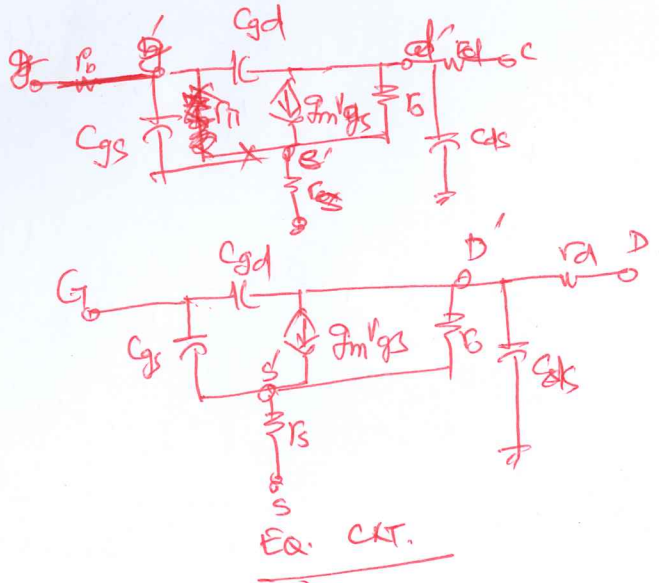 Cgd
g' d' rd C
Cgs gm vgs ro Cds
S'
Cgd D' rd D
G
Cgs gm vgs ro Cds
S'
rs
S
EQ. CKT.